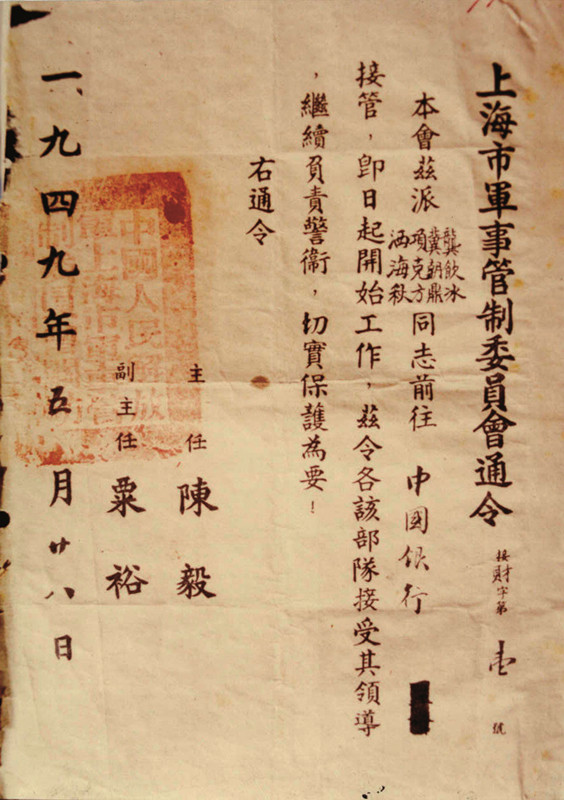 上海市軍事管制委員會通令 接財字第壹號
本會茲派龔飲冰 冀朝鼎 項克方 洒海秋同志前往中國銀行
接管，卽日起開始工作，茲令各該部隊接受其領導
，繼續負責警衛，切實保護為要！
右通令
主任 陳毅
副主任 粟裕
中國人民解放
軍上海市軍事
一九四九年五月廿八日